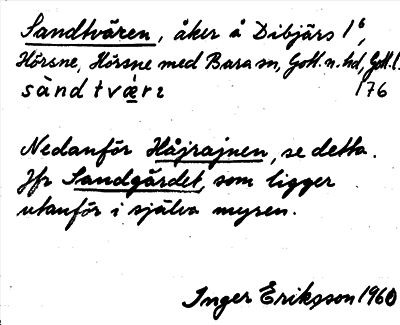 Sandtvären, åker å Dibjärs 1⁶,
Hörsne, Hörsne med Bara sn, Gotl. n. hd, Gotl. l.
sànd tvæ̀rɛ 176
Nedanför Håjrajnen, se detta.
Jfr Sandgärdet, som ligger
utanför i själva myren.
Inger Eriksson 1960